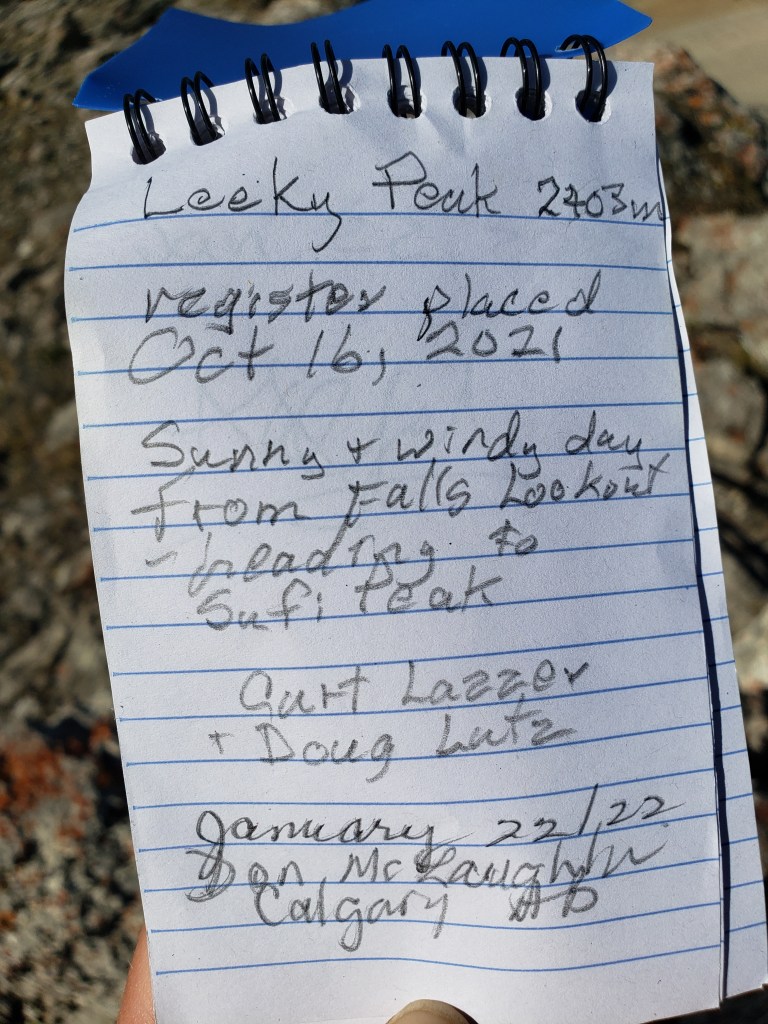 Leeky Peak 2403m
register placed
Oct 16, 2021
Sunny + windy day
from Falls Lookout
- heading to
Sufi Peak
Curt Lazzer
+ Doug Lutz
January 22/22
Dan McLaughlin
Calgary AB